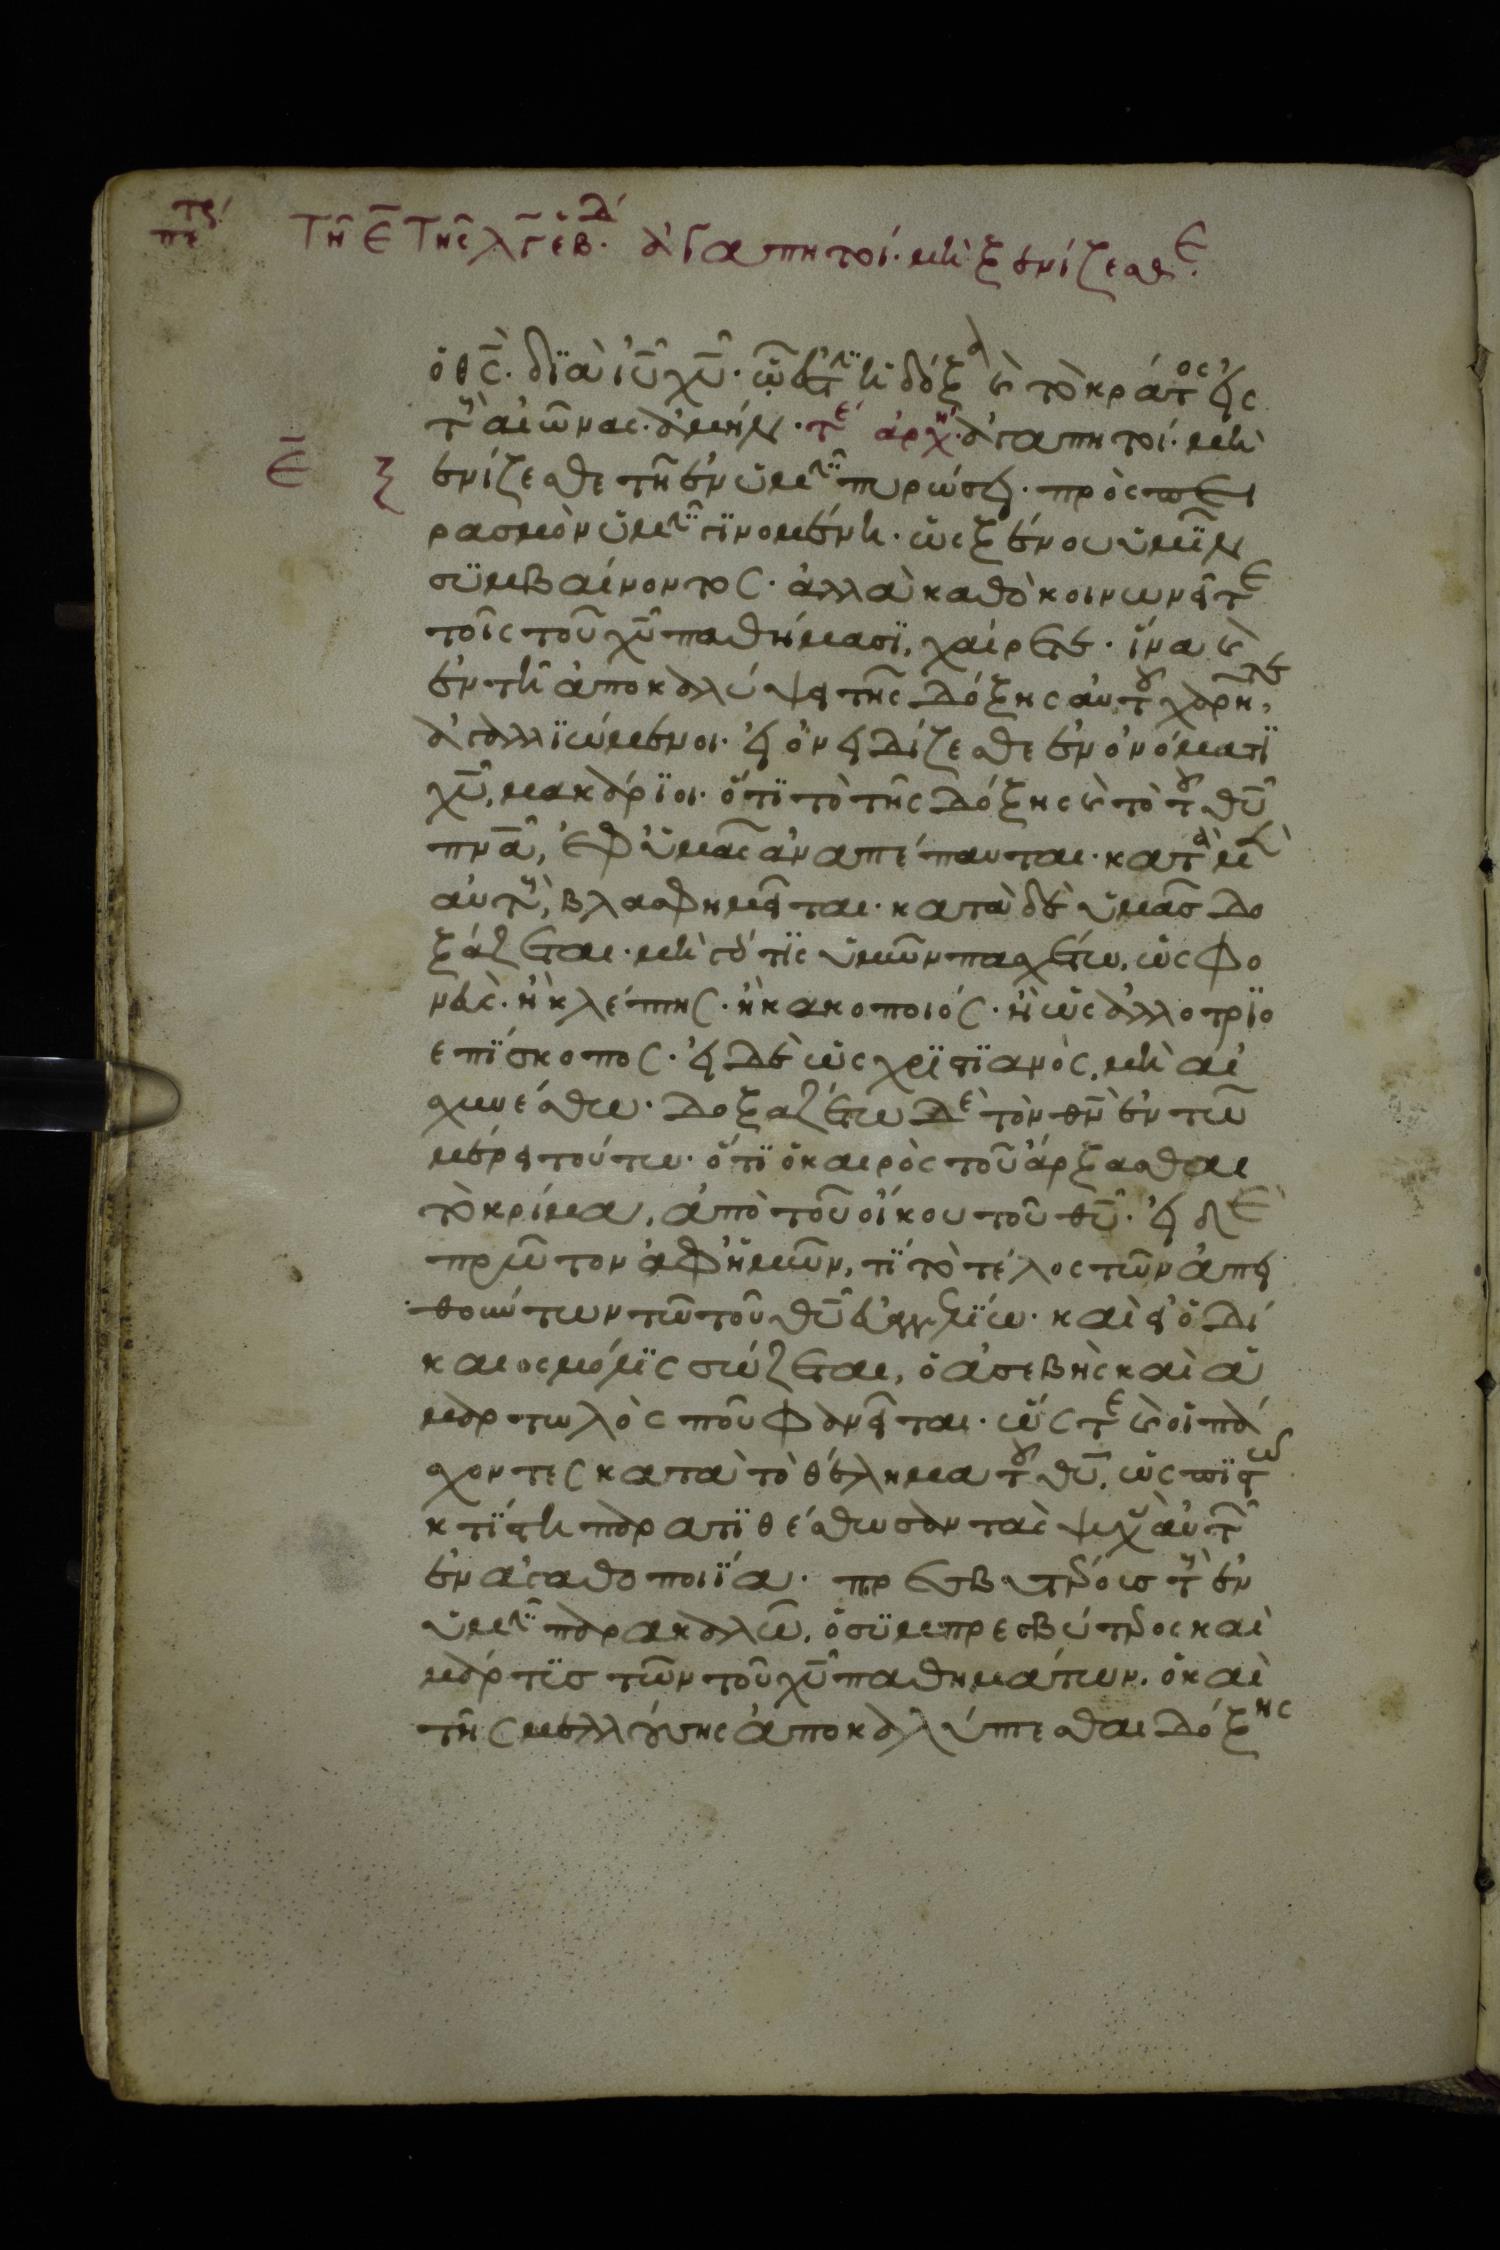 Τῆ ε̄ τῆς λγ̄ ἑβδ. ἀγαπητοί. μὴ ξενίζεσθε.
ὁ θς̄. δϊὰ ῑῡ χῡ. ὧ ἐστὶν ἡ δόξα καὶ τὸ κράτος εἰς
τοὺς αἰῶνας. ἀμήν. τέ ἀρχή. ἀγαπητοί. μὴ
ε̄ ξ ενίζεσθε τῆ ἐν ὑμῖν πυρώσει. πρὸς πει
ρασμὸν ὑμῖν γϊνομένη. ὡς ξένου ὑμῖν
συμβαίνοντος. ἀλλὰ καθὸ κοινωνεῖτε
τοῖς τοῦ χῡ παθήμασϊ, χαίρετε. ἵνα καὶ
ἐν τῆ ἀποκαλύψει τῆς δόξης αὐτοῦ χαρῆτε,
ἀγαλλϊώμενοι. εἰ ὀνειδίζεσθε ἐν ὀνόματϊ
χῡ, μακάρϊοι. ὅτϊ τὸ τῆς δόξης καὶ τὸ τοῦ θῡ
πνᾱ, ἐφ ὑμᾶς ἀναπέπαυται. κατὰ μὲν
αὐτοὺς, βλασφημεῖται. κατὰ δὲ ὑμᾶς δο
ξάζεται. μὴ γάρ τϊς ὑμῶν πασχέτω, ὡς φο
νεὺς. ἢ κλέπτης. ἢ κακοποιός. ἢ ὡς ἀλλοτρϊο
επϊσκοπος. εἰ δὲ ὡς χρϊστϊανὸς, μὴ αἰ
σχυνέσθω. δοξαζέτω δὲ τὸν θν̄ ἐν τῶ
μέρει τούτω. ὅτϊ ὁ καιρὸς τοῦ ἄρξασθαι
τὸ κρίμα, ἀπὸ τοῦ οἴκου τοῦ θῡ. εἰ δὲ
πρῶτον ἀφ ἡμῶν, τϊ τὸ τέλος τῶν ἀπει
θούντων τῶ τοῦ θῡ εὐαγγελϊω. καὶ εἰ ὁ δί
καιος μόλϊς σώζεται, ὁ ἀσεβὴς καὶ ἁ
μαρτωλὸς ποῦ φανεῖται. ὥστε καὶ οἱ πά
σχοντες κατὰ τὸ θέλημα τοῦ θῡ, ὡς πϊστῶ
κτϊστη παρατϊθέσθωσαν τὰς ψυχὰς αὐτῶν
ἐν ἀγαθοποιϊα. πρεσβυτέρους τοὺς ἐν
ὑμῖν παρακαλῶ, ὁ συμπρεσβύτερος καὶ
μάρτυς τῶν τοῦ χῡ παθημάτων. ὁ καὶ
τῆς μελλούσης ἀποκαλύπτεσθαι δόξης